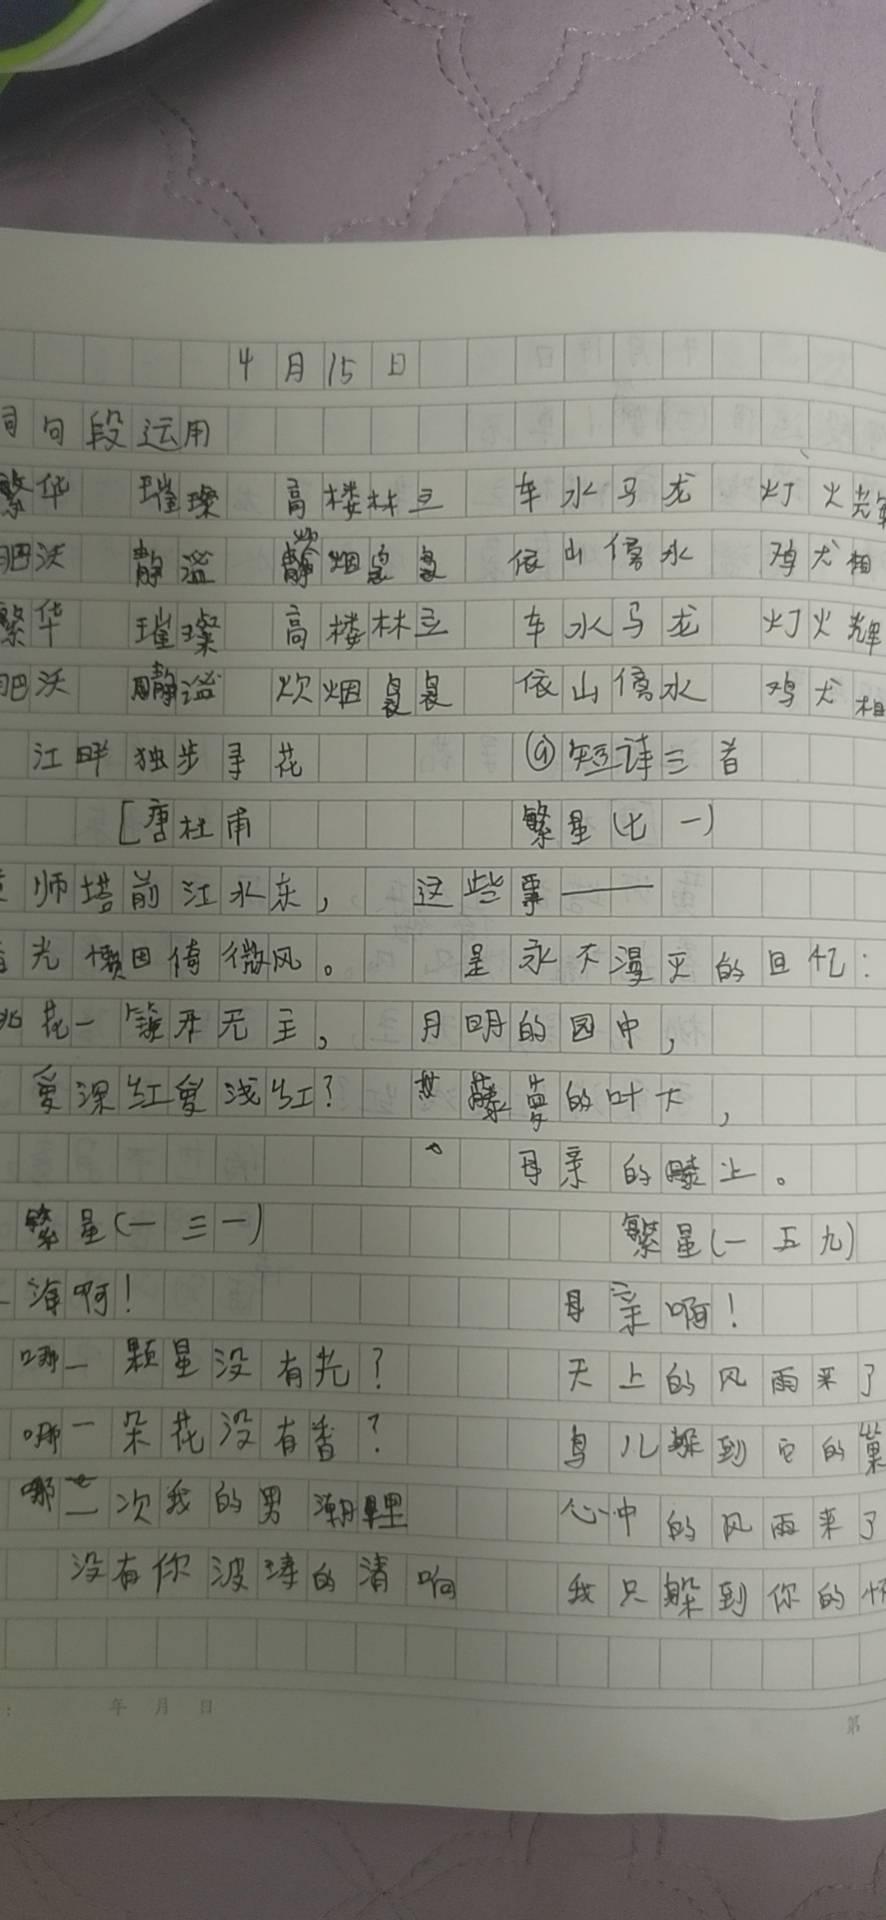 4月15日
句段运用
繁华 璀璨 高楼林立 车水马龙 灯火
肥沃 静谧 炊烟袅袅 依山傍水 鸡犬相
繁华 璀璨 高楼林立 车水马龙 灯火辉
肥沃 静谧 炊烟袅袅 依山傍水 鸡犬相
江畔独步寻花 ⑨短诗三首
[唐杜甫 繁星(七一)
师塔前江水东, 这些事——
光懒困倚微风。 是永不漫灭的回忆:
花一簇开无主, 月明的园中,
爱深红爱浅红? 藤萝的叶下,
母亲的膝上。
繁星(一三一) 繁星(一五九)
海啊! 母亲啊!
哪一颗星没有光? 天上的风雨来了
哪一朵花没有香? 鸟儿躲到它的巢
哪一次我的 潮里 心中的风雨来了
没有你波涛的清响 我只躲到你的怀
年 月 日
第